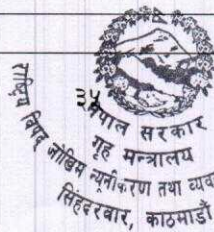 ३५
नेपाल सरकार
गृह मन्त्रालय
राष्ट्रिय विपद् जोखिम न्यूनीकरण तथा व्यव
सिंहदरवार, काठमाडौं